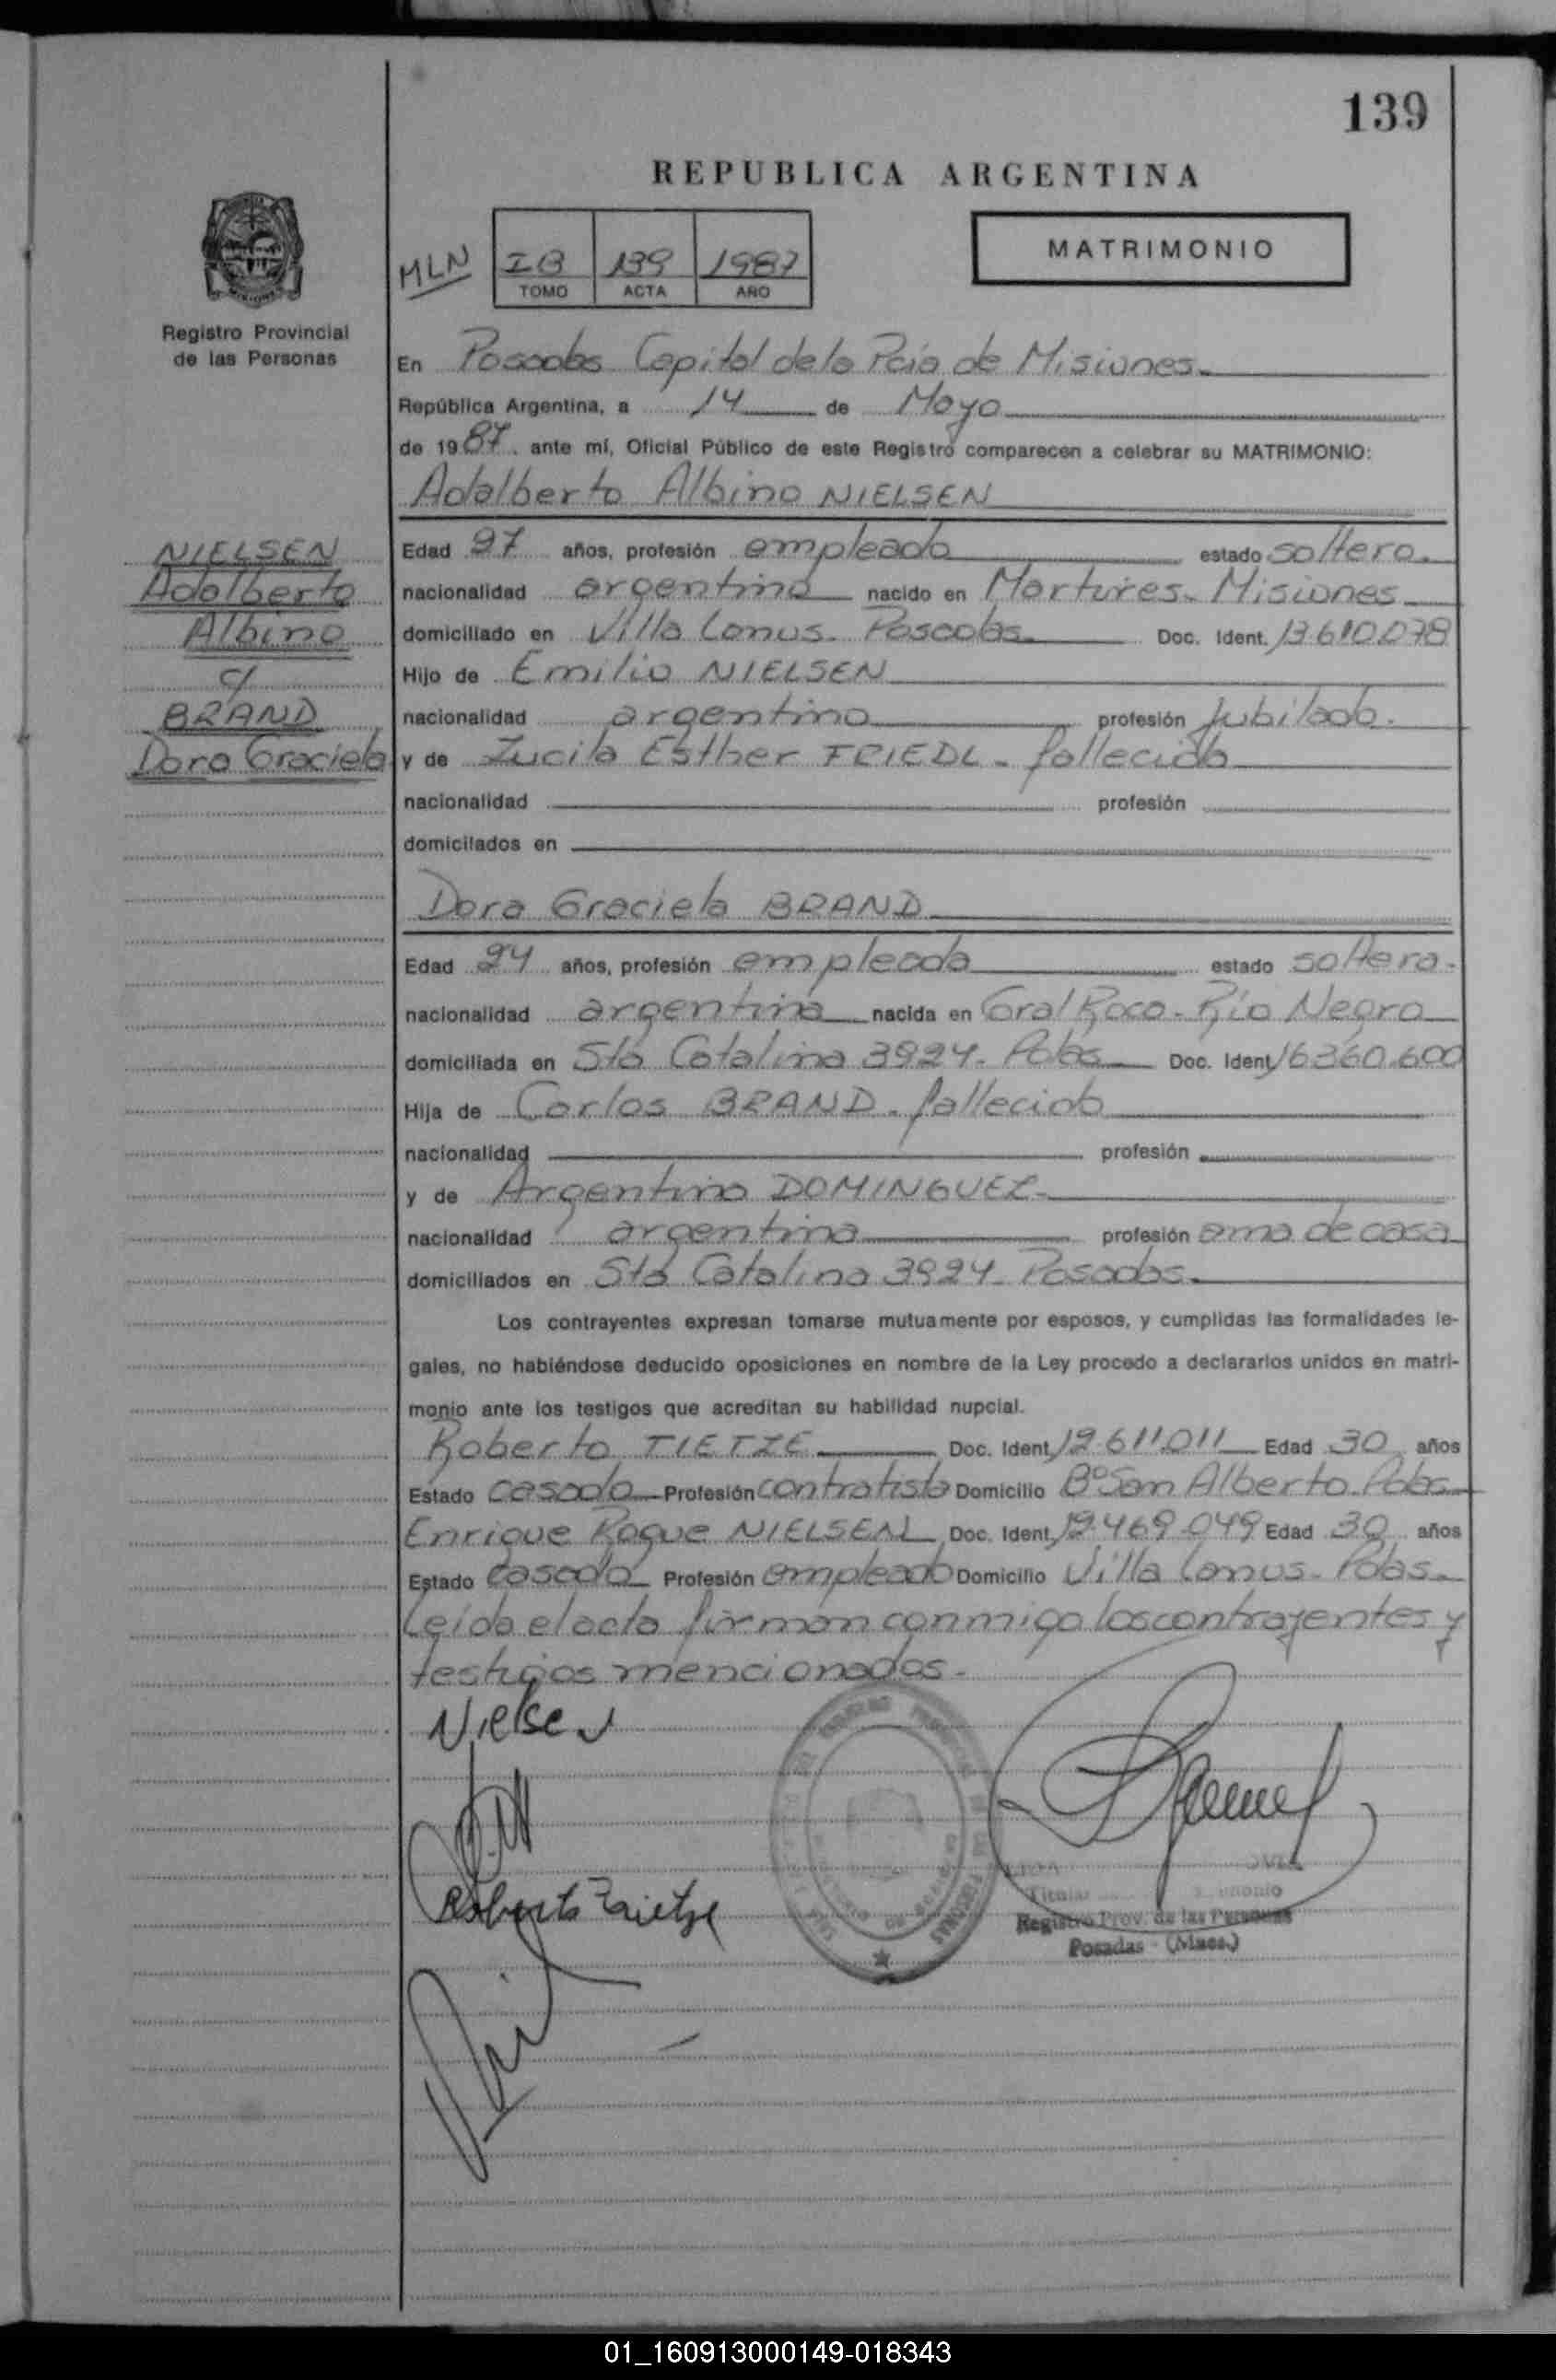 139
REPUBLICA ARGENTINA
MATRIMONIO
MLN
IB 139 1987
TOMO ACTA AÑO
Registro Provincial
de las Personas
En Posadas Capital de la Pcia de Misiones.
República Argentina, a 14 de Mayo
de 1987. ante mí, Oficial Público de este Registro comparecen a celebrar su MATRIMONIO:
Adalberto Albino NIELSEN
NIELSEN
Adalberto
Albino
c/
BRAND
Dora Graciela
Edad 27 años, profesión empleado estado soltero.
nacionalidad argentino nacido en Martires. Misiones
domiciliado en Villa Lanus. Posadas. Doc. Ident. 13.610.078
Hijo de Emilio NIELSEN
nacionalidad argentino profesión Jubilado.
y de Lucila Esther FRIEDL - fallecida
nacionalidad profesión
domicilados en
Dora Graciela BRAND
Edad 24 años, profesión empleada estado soltera.
nacionalidad argentina nacida en Gral Roca. Río Negro
domiciliada en Sta Catalina 3924. Pdas Doc. Ident. 16.360.600
Hija de Carlos BRAND. fallecido
nacionalidad profesión
y de Argentina DOMINGUEZ.
nacionalidad argentina profesión ama de casa
domiciliados en Sta Catalina 3924. Posadas.
Los contrayentes expresan tomarse mutuamente por esposos, y cumplidas las formalidades le-
gales, no habiéndose deducido oposiciones en nombre de la Ley procedo a declararlos unidos en matri-
monio ante los testigos que acreditan su habilidad nupcial.
Roberto TIETZE Doc. Ident. 12.611.011 Edad 30 años
Estado casado Profesión contratista Domicilio B° San Alberto. Pdas
Enrique Roque NIELSEN Doc. Ident. 12.469.049 Edad 30 años
Estado casado Profesión empleado Domicilio Villa Lanus. Pdas.
Leída el acta firman conmigo los contrayentes y
testigos mencionados.
Nielsen
Roberto Tietze
Titular
Registro Prov. de las Personas
Posadas - (Mnes.)
01_160913000149-018343